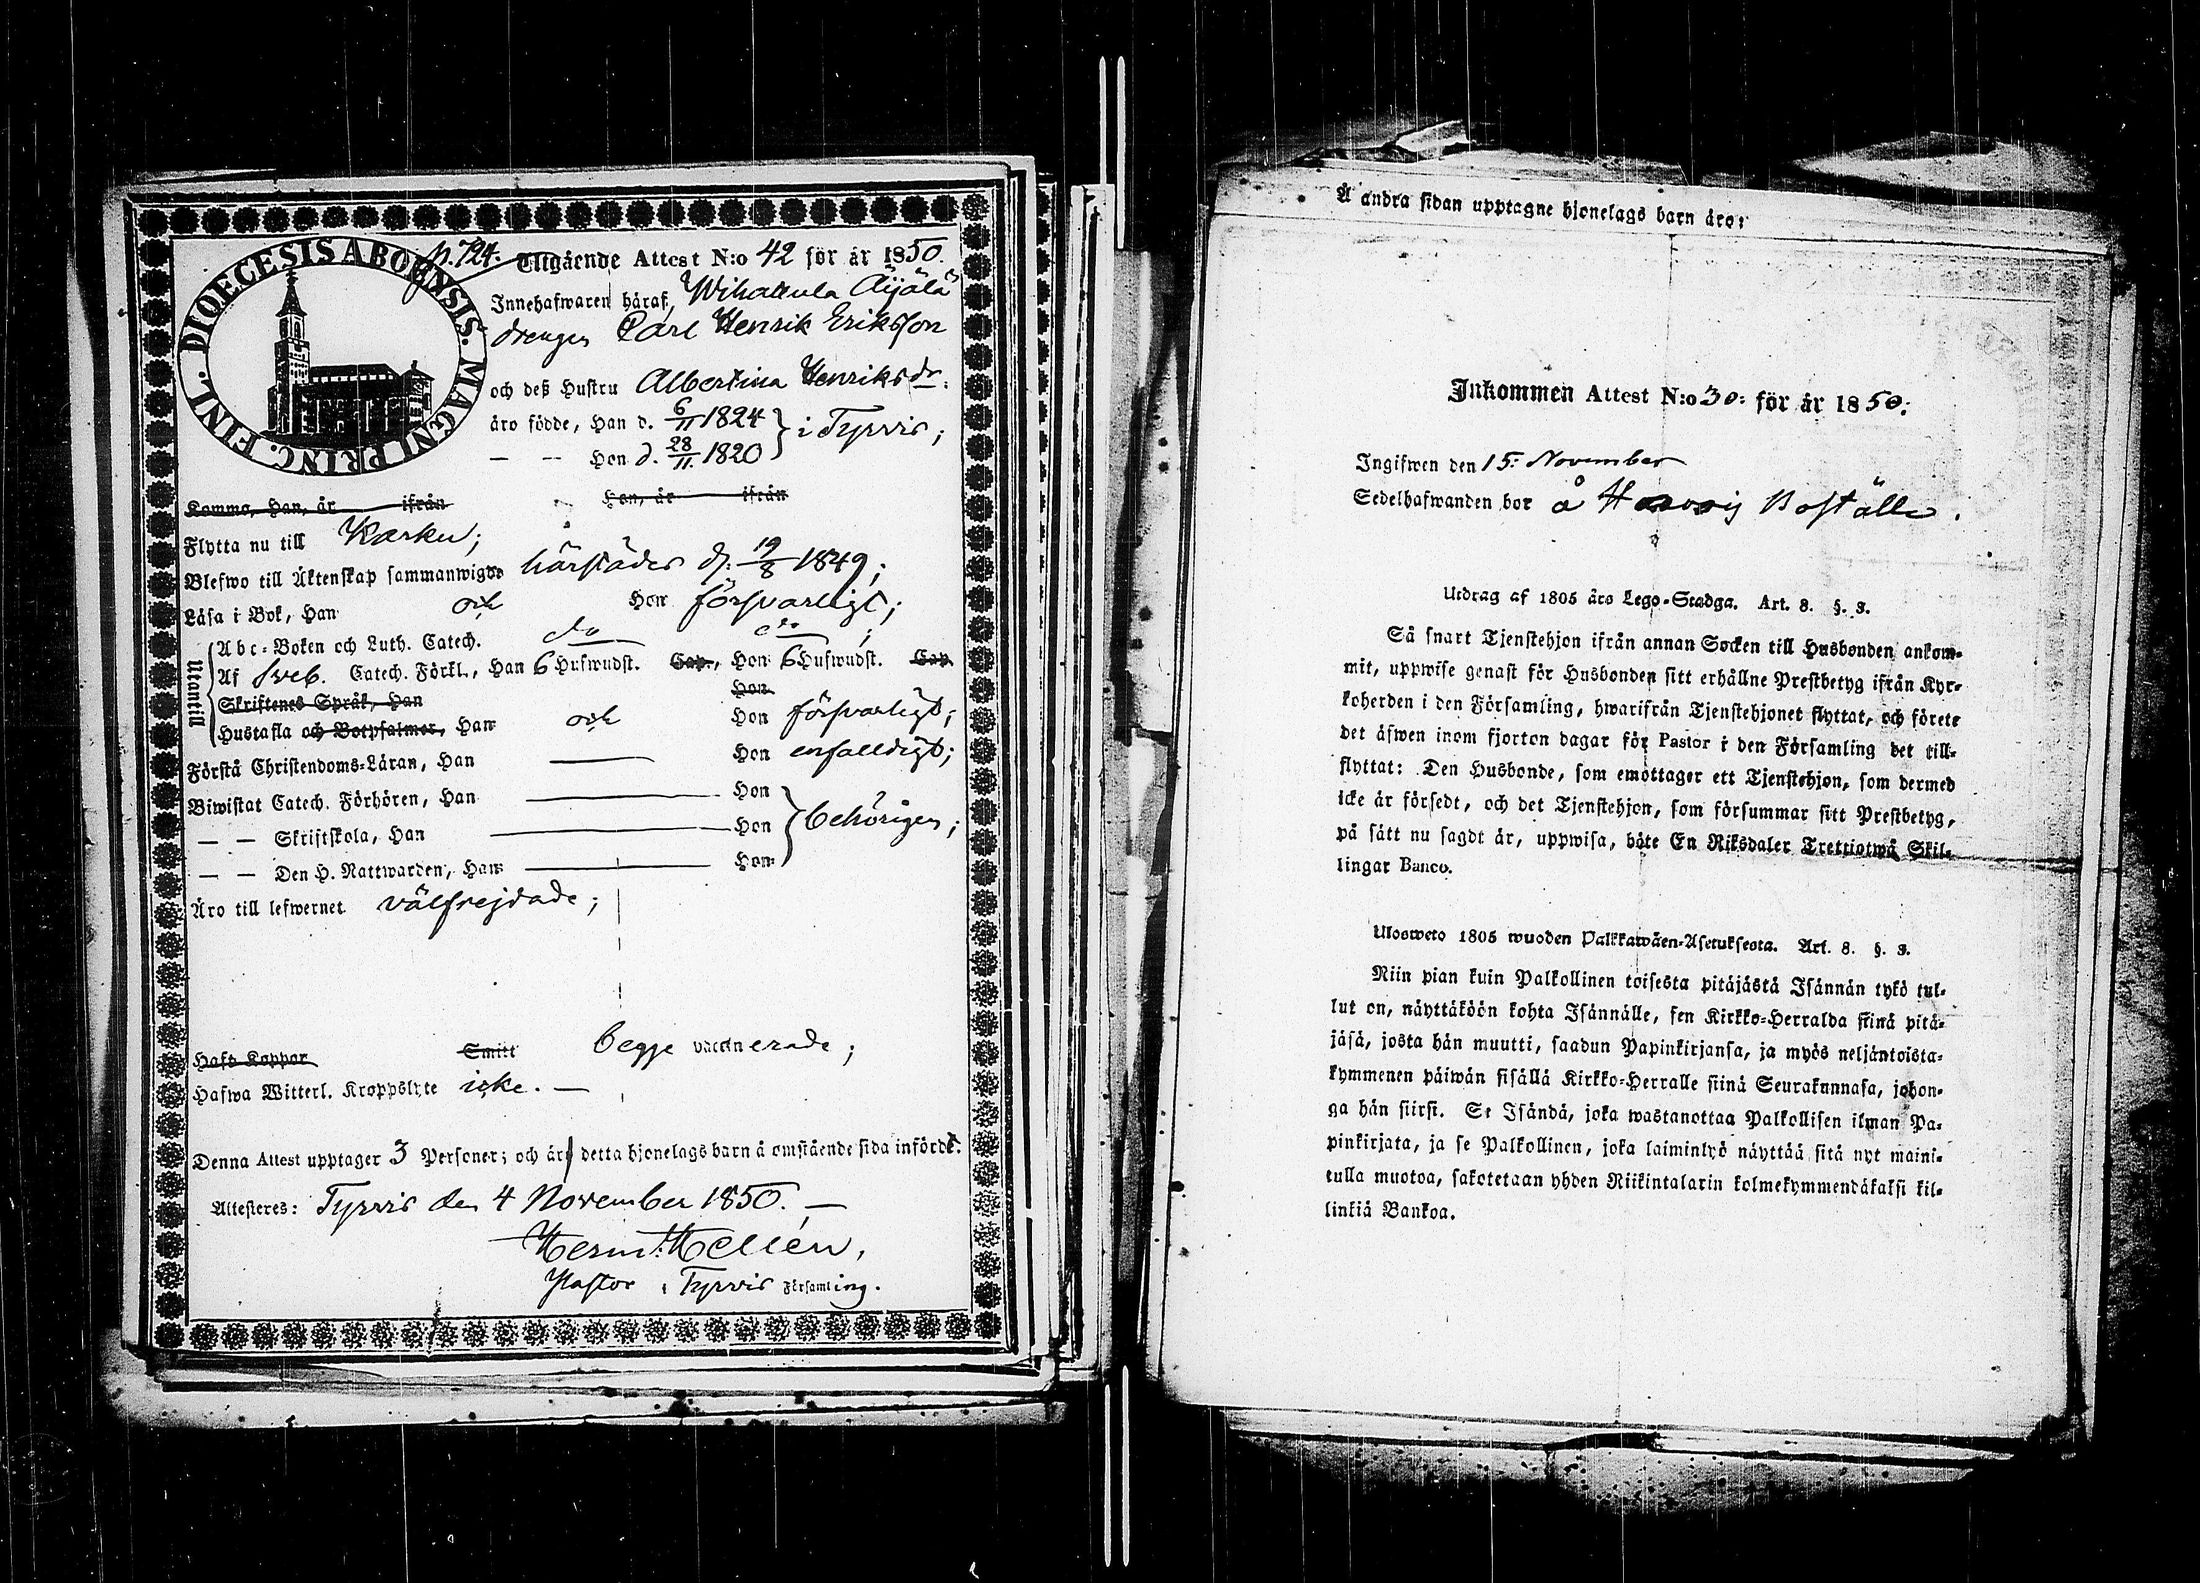 DIOECESIS ABOENSIS. MAGNI PRINC. FINL.
p. 724. Utgående Attest N:o 42 för år 1850.
Innehafwaren häraf, Wihattula Äijälä
drengen Carl Henrik Eriksson
och deß Hustru Albertina Henriksdr.
äro födde, Han d. 6/11 1824 } i Tyrvis;
— — Hon d. 28/11. 1820
Kommo, Han, år ifrån Hon, år ifrån
Flytta nu till Karku;
Blefwo till Äktenskap sammanwigde härstädes d. 19/8 1849;
Läsa i Bok, Han och Hon försvarligt;
Utantill
Abc-Boken och Luth. Catech. do do;
Af Sveb. Catech. Förkl., Han 6 Hufwudst. Cap., Hon 6 Hufwudst. Cap.
Skriftenes Språk, Han Hon
Hustafla och Botpsalmer, Han och Hon försvarligt;
Förstå Christendoms-Läran, Han — Hon enfalldigt;
Biwistat Catech. Förhören, Han — Hon
— — Skriftskola, Han — Hon } behörigen;
— — Den H. Nattwarden, Han — Hon
Äro till lefwernet välfrejdade;
Haft Koppor Smitt begge vaccinerade;
Hafwa Witterl. Kroppslyte icke. —
Denna Attest upptager 3 Personer; och äro detta hjonelags barn å omstående sida införde.
Attesteres: Tyrvis den 4 November 1850. —
Herm. Hellén,
Pastor i Tyrvis Församling.
Å andra sidan upptagne hjonelags barn äro:
Inkommen Attest N:o 30: för år 1850:
Ingifwen den 15: November
Sedelhafwanden bor å Boställe.
Utdrag af 1805 års Lego-Stadga. Art. 8. §. 3.
Så snart Tjenstehjon ifrån annan Socken till Husbonden ankom-
mit, uppwise genast för Husbonden sitt erhållne Prestbetyg ifrån Kyr-
koherden i den Församling, hwarifrån Tjenstehjonet flyttat, och förete
det äfwen inom fjorton dagar för Pastor i den Församling det till-
flyttat: Den Husbonde, som emottager ett Tjenstehjon, som dermed
icke är försedt, och det Tjenstehjon, som försummar sitt Prestbetyg,
på sätt nu sagdt är, uppwisa, böte En Riksdaler Trettiotwå Skil-
lingar Banco.
Ulosweto 1805 wuoden Palkkawäen-Asetuksesta. Art. 8. §. 3.
Niin pian kuin Palkollinen toisesta pitäjästä Isännän tykö tul-
lut on, näyttäköön kohta Isännälle, sen Kirkko-Herralda siinä pitä-
jäsä, josta hän muutti, saadun Papinkirjansa, ja myös neljäntoista-
kymmenen päiwän sisällä Kirkko-Herralle siinä Seurakunnasa, johon-
ga hän siirsi. Se Isändä, joka wastanottaa Palkollisen ilman Pa-
pinkirjata, ja se Palkollinen, joka laiminlyö näyttää sitä nyt maini-
tulla muotoa, sakotetaan yhden Riikintalarin kolmekymmendäkaksi kil-
linkiä Bankoa.